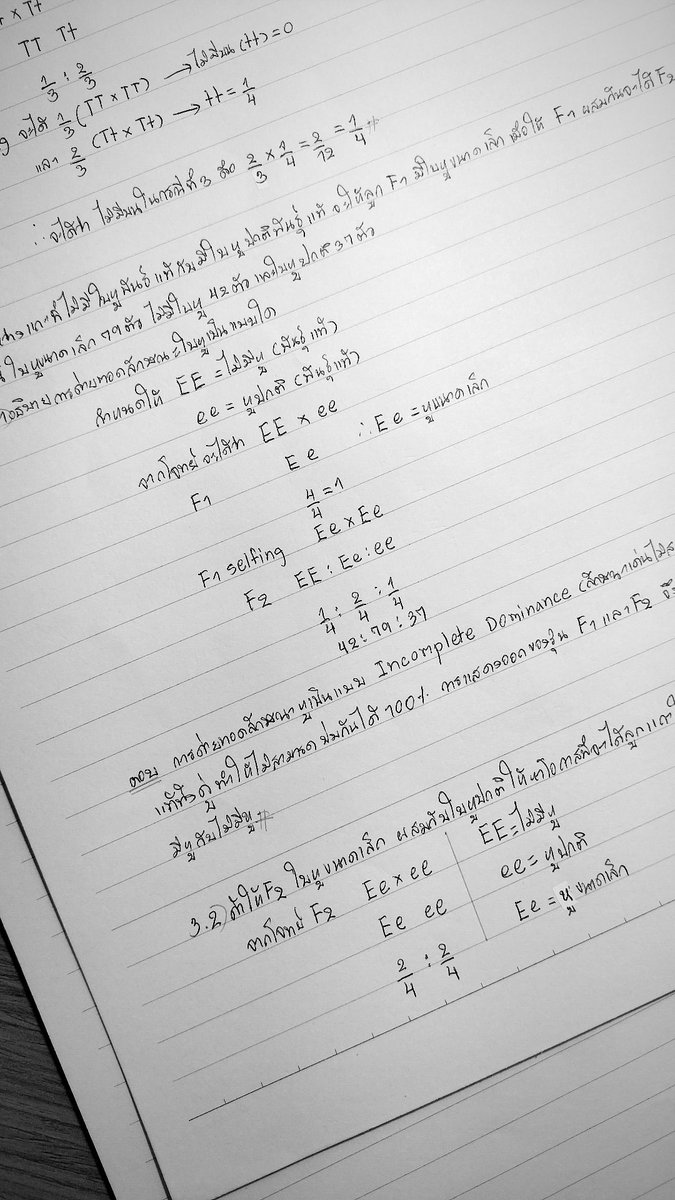 × Tt
TT Tt
1/3 : 2/3
จะได้ 1/3 (TT × TT) → ไม่มีขน (tt) = 0
และ 2/3 (Tt × Tt) → tt = 1/4
∴ จะได้ว่า ไม่มีขนในกรณีที่ 3 คือ 2/3 × 1/4 = 2/12 = 1/4 #
แกะที่ไม่มีใบหูพันธุ์แท้กับมีใบหูปกติพันธุ์แท้ จะให้ลูก F1 มีใบหูขนาดเล็ก เมื่อให้ F1 ผสมกันจะได้ F2
ใบหูขนาดเล็ก 79 ตัว ไม่มีใบหู 42 ตัว และใบหูปกติ 37 ตัว
อธิบายการถ่ายทอดลักษณะใบหูเป็นแบบใด
กำหนดให้ EE = ไม่มีหู (พันธุ์แท้)
ee = หูปกติ (พันธุ์แท้)
จากโจทย์ จะได้ว่า EE × ee
F1 Ee ∴ Ee = หูขนาดเล็ก
4/4 = 1
F1 selfing Ee × Ee
F2 EE : Ee : ee
1/4 : 2/4 : 1/4
42 : 79 : 37
ตอบ การถ่ายทอดลักษณะหูเป็นแบบ Incomplete Dominance (ลักษณะเด่นไม่ส
แท้ทั้งคู่ ทำให้ไม่สามารถข่มกันได้ 100% การแสดงออกของรุ่น F1 และ F2 จึ
มีหูกับไม่มีหู #
3.2) ถ้าให้ F2 ใบหูขนาดเล็ก ผสมกับใบหูปกติ ให้หาโอกาสที่จะได้ลูกแกะ
จากโจทย์ F2 Ee × ee EE = ไม่มีหู
Ee ee ee = หูปกติ
2/4 : 2/4 Ee = หูขนาดเล็ก